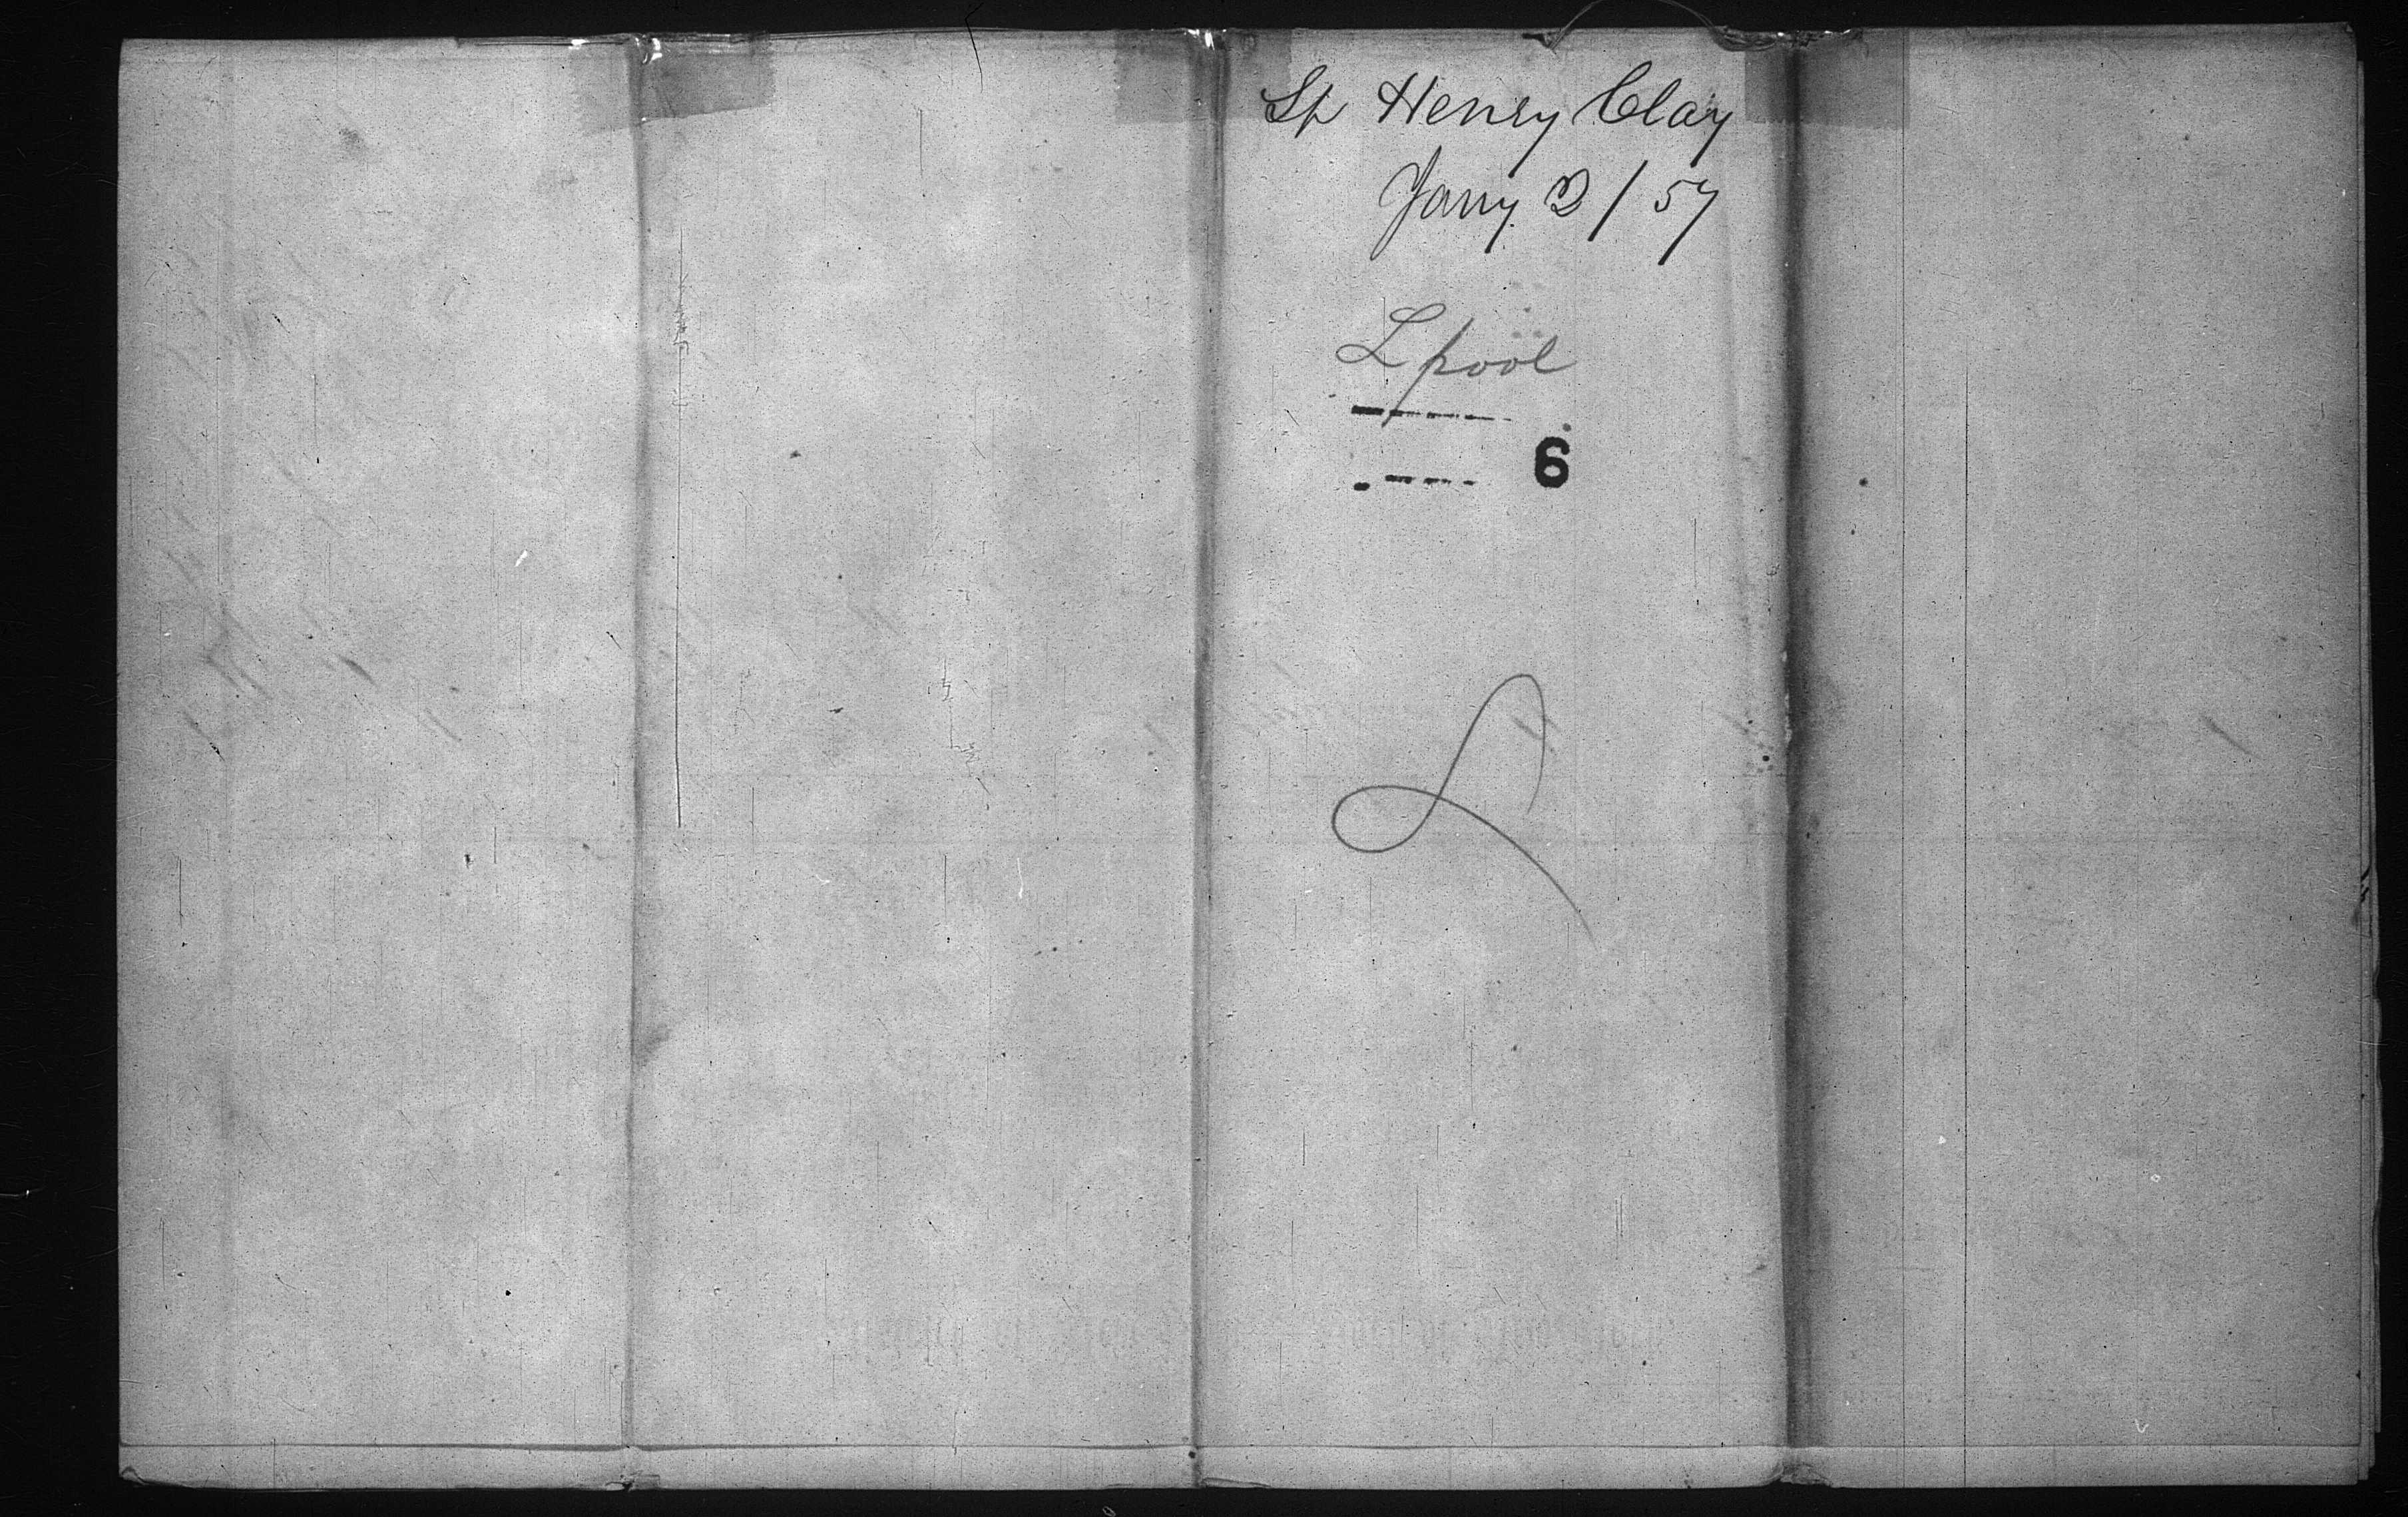 Sh Henry Clay
Jany. 2/57
Lpool
6